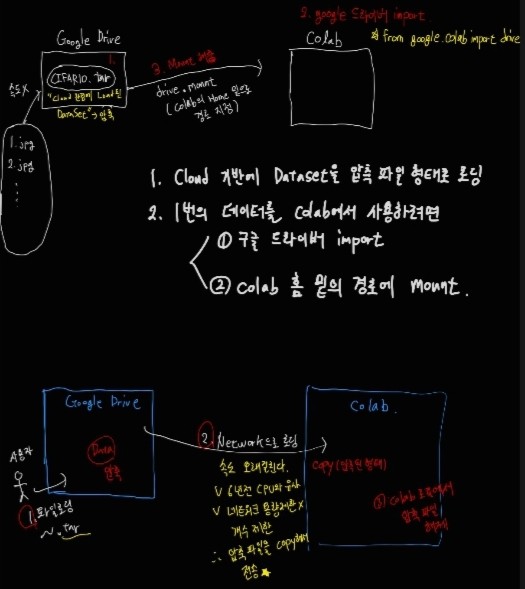 2. google 드라이버 import
Google Drive
Colab
* from google.colab import drive
1.
CIFAR10.tar
"Cloud 환경에 Load된
DataSet" → 압축
속도 X
3. Mount
drive.mount
(Colab의 Home 밑으로
경로 지정)
1.jpg
2.jpg
1. Cloud 기반에 Dataset을 압축 파일 형태로 로딩
2. 1번의 데이터를 Colab에서 사용하려면
① 구글 드라이버 import
② Colab 홈 밑의 경로에 mount.
Google Drive
Colab.
Data
압축
사용자
1. 파일로딩
~.tar
2. Network으로 로딩
속도 오래걸린다.
V 6년전 CPU와 유사
V 네트워크 용량제한 X
개수 제한
∴ 압축파일을 copy해서
전송 ★
copy (압축된 형태)
③ Colab 로컬에서
압축 파일
해제